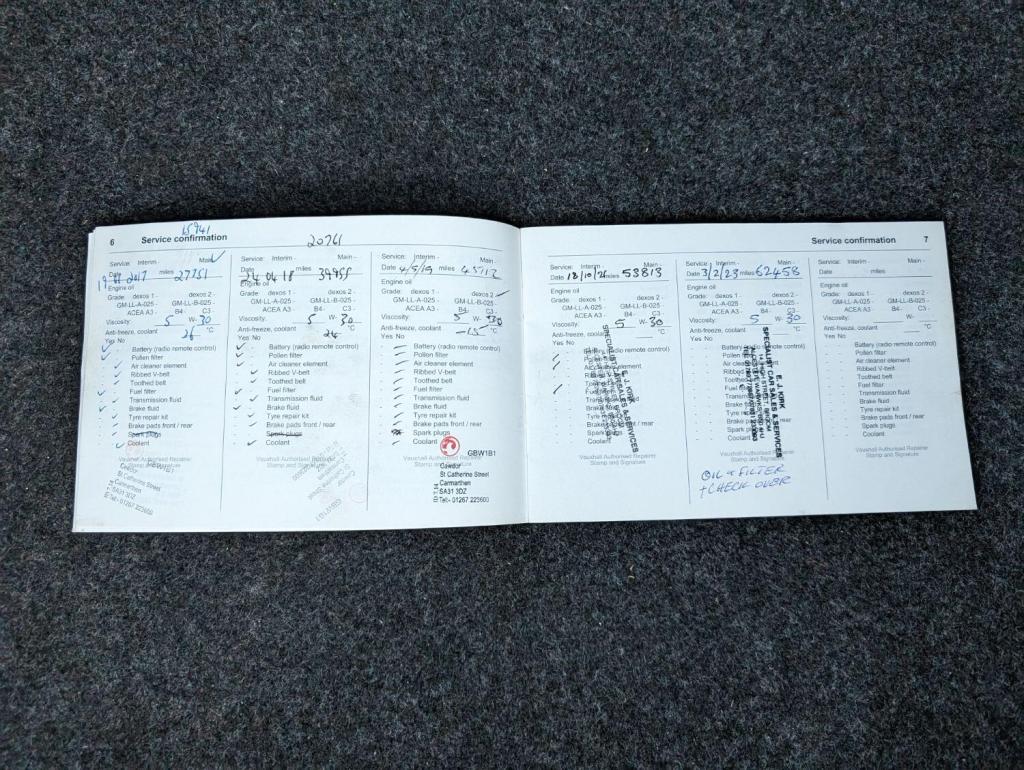 6 Service confirmation
15941
20761
Service: Interim - Main -
Date 19 01 2017 miles 27751
Engine oil
Grade: dexos 1 - dexos 2 -
GM-LL-A-025 - GM-LL-B-025 -
ACEA A3 - B4- C3 -
Viscosity: 5 W- 30
Anti-freeze, coolant 26 °C
Yes No
Battery (radio remote control)
Pollen filter
Air cleaner element
Ribbed V-belt
Toothed belt
Fuel filter
Transmission fluid
Brake fluid
Tyre repair kit
Brake pads front / rear
Spark plugs
Coolant
Vauxhall Authorised Repairer
Stamp and Signature
St Catherine Street
Carmarthen
SA31 3DZ
Tel:- 01267 223600
Service: Interim - Main -
Date 24 04 18 miles 39955
Engine oil
Grade: dexos 1 - dexos 2 -
GM-LL-A-025 - GM-LL-B-025 -
ACEA A3 - B4- C3 -
Viscosity: 5 W- 30
Anti-freeze, coolant °C
Yes No
Battery (radio remote control)
Pollen filter
Air cleaner element
Ribbed V-belt
Toothed belt
Fuel filter
Transmission fluid
Brake fluid
Tyre repair kit
Brake pads front / rear
Spark plugs
Coolant
Vauxhall Authorised Repairer
Stamp and Signature
Service: Interim - Main -
Date 4/5/19 miles 45712
Engine oil
Grade: dexos 1 - dexos 2 -
GM-LL-A-025 - GM-LL-B-025 -
ACEA A3 - B4- C3 -
Viscosity: 5 W- 30
Anti-freeze, coolant -15 °C
Yes No
Battery (radio remote control)
Pollen filter
Air cleaner element
Ribbed V-belt
Toothed belt
Fuel filter
Transmission fluid
Brake fluid
Tyre repair kit
Brake pads front / rear
Spark plugs
Coolant
Vauxhall Authorised Repairer
Stamp and Signature
GBW1B1
Cawdor
St Catherine Street
Carmarthen
SA31 3DZ
Tel:- 01267 223600
Service confirmation 7
Service: Interim - Main -
Date miles 53813
Engine oil
Grade: dexos 1 - dexos 2 -
GM-LL-A-025 - GM-LL-B-025 -
ACEA A3 - B4- C3 -
Viscosity: 5 W- 30
Anti-freeze, coolant °C
Yes No
Battery (radio remote control)
Pollen filter
Air cleaner element
Ribbed V-belt
Fuel filter
Brake fluid
Coolant
Vauxhall Authorised Repairer
Stamp and Signature
E. J. KIRK
SPECIALIST CAR SALES & SERVICES
Service: Interim - Main -
Date 3/2/23 miles 62458
Engine oil
Grade: dexos 1 - dexos 2 -
GM-LL-A-025 - GM-LL-B-025 -
ACEA A3 - B4- C3 -
Viscosity: 5 W- 30
Anti-freeze, coolant °C
Yes No
Battery (radio remote control)
Pollen filter
Fuel filter
Brake fluid
Tyre repair kit
Coolant
Vauxhall Authorised Repairer
Stamp and Signature
E. J. KIRK
SPECIALIST CAR SALES & SERVICES
OIL & FILTER
+ CHECK OVER
Service: Interim - Main -
Date miles
Engine oil
Grade: dexos 1 - dexos 2 -
GM-LL-A-025 - GM-LL-B-025 -
ACEA A3 - B4- C3 -
Viscosity: W-
Anti-freeze, coolant °C
Yes No
Battery (radio remote control)
Pollen filter
Air cleaner element
Ribbed V-belt
Toothed belt
Fuel filter
Transmission fluid
Brake fluid
Tyre repair kit
Brake pads front / rear
Spark plugs
Coolant
Vauxhall Authorised Repairer
Stamp and Signature